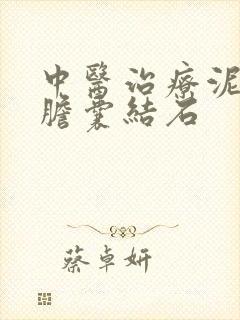 中醫治療泥
膽囊結石
蔡卓妍